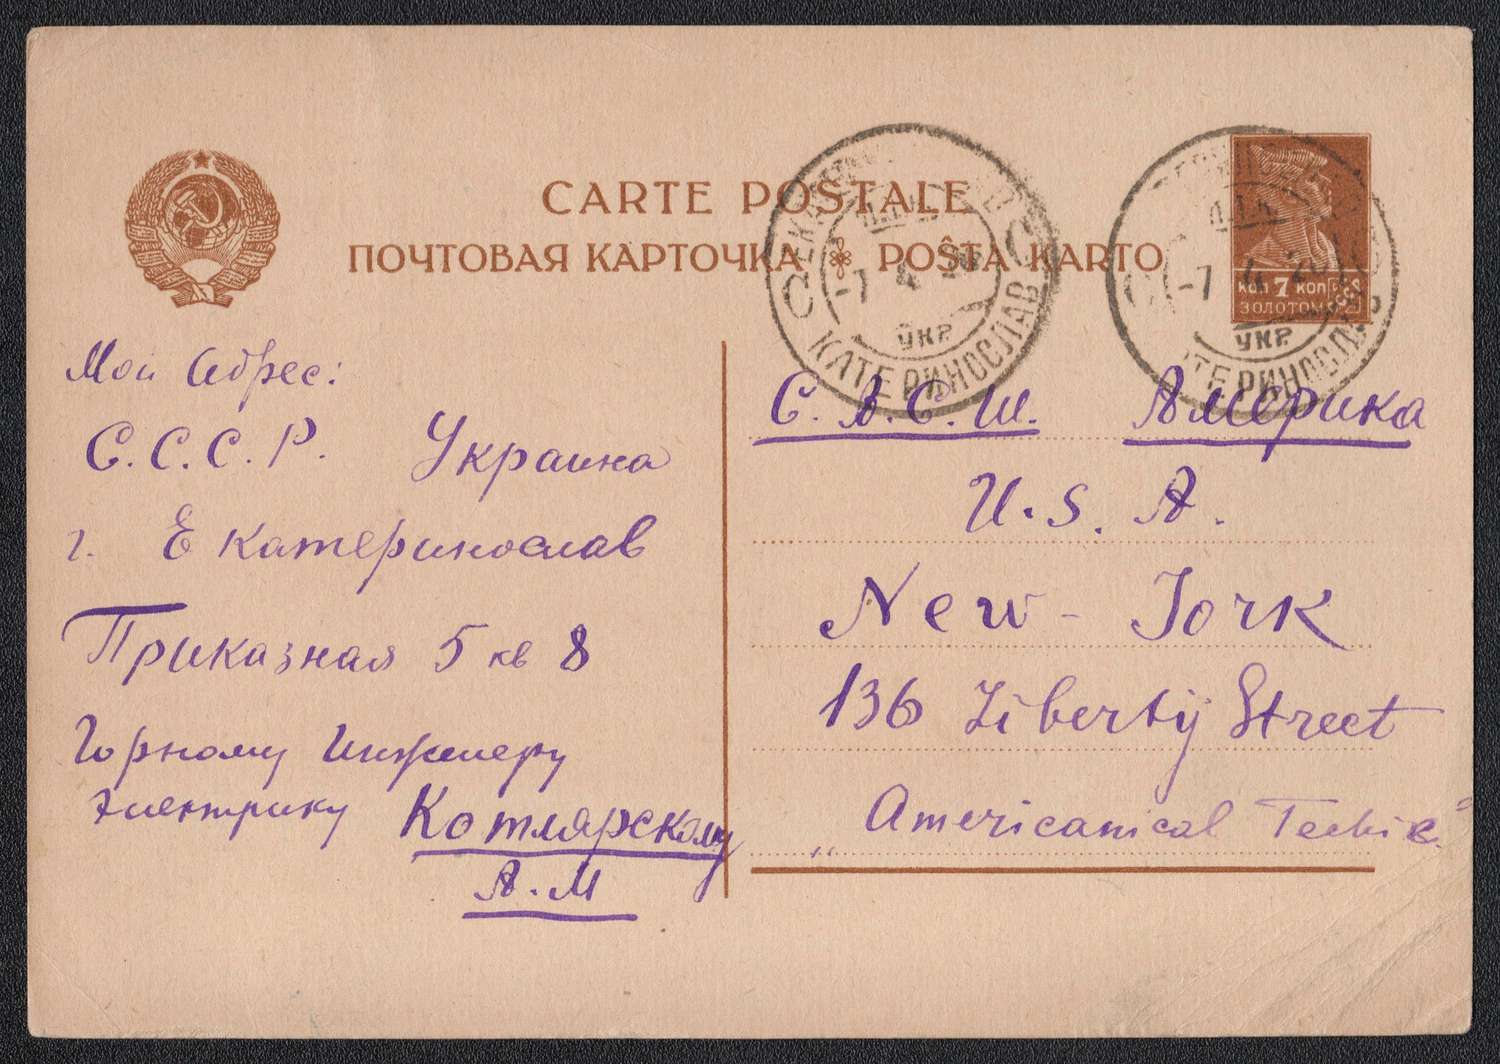 CARTE POSTALE
ПОЧТОВАЯ КАРТОЧКА POŜTA KARTO
КОП 7 КОП
ЗОЛОТОМ
-7 4 26
УКР
КАТЕРИНОСЛАВ
-7 4 26
УКР
Мой Адрес:
С.С.С.Р. Украина
г. Екатеринослав
Приказная 5 кв 8
Горному Инженеру
Электрику Котлярскому
А.М
С.А.С.Ш. Америка
U.S.A.
New-Jork
136 Liberty Street
„Americanical Techic"